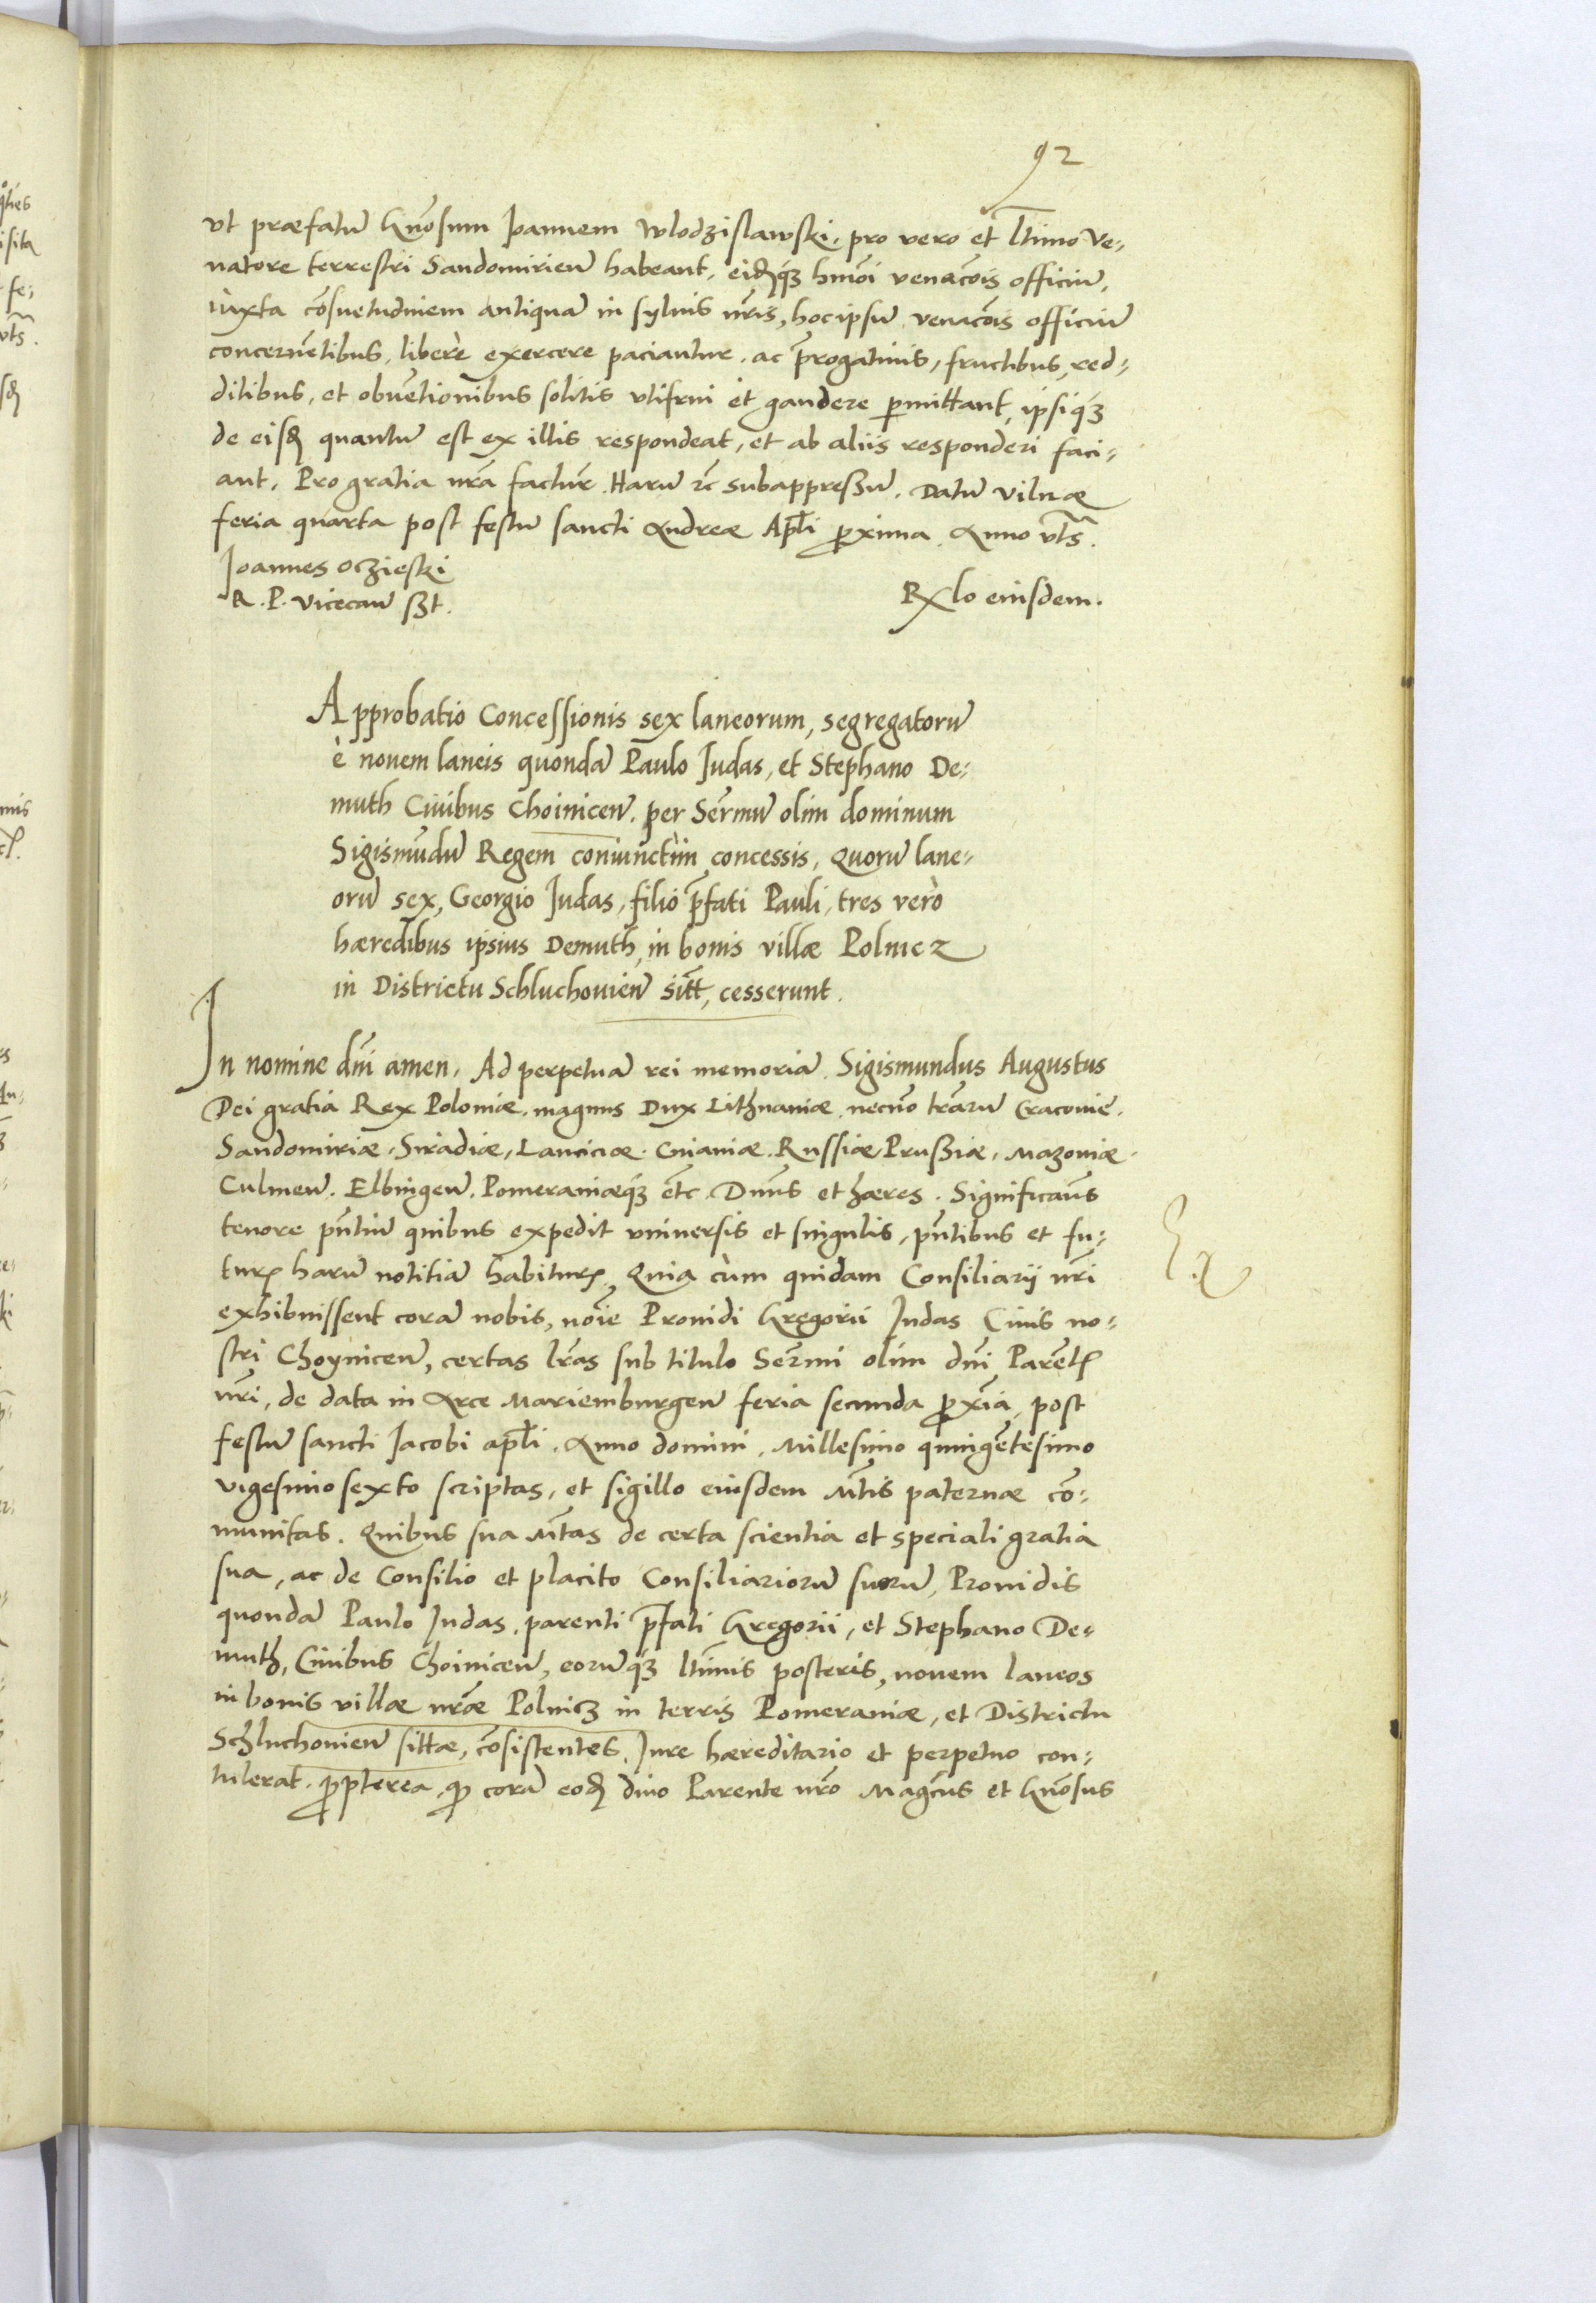 92
vt præfatũ Gnõsum Ioannem Wlodzislawski, pro vero et ltimo Ve-
natore terrestri Sandomirieñ habeant, eidq́ꝫ hmõi venacõis officiũ,
iuxta cõsuetudinem antiquã in syluis nr̃is, hoc ipsũ venacõis officiũ
concernẽtibus, liberè exercere paciantur. ac p̃rogatiuis, fructibus, red-
ditibus, et obuẽtionibus solitis vtifrui et gaudere permittant, ipsiq́ꝫ
de eisd quantũ est ex illis respondeat, et ab aliis responderi faci-
ant. Pro gratia nrã facturi. Harũ &c subappreßũ. Datũ Vilnæ
feria quarta post festũ sancti Andreæ Apl̃i ꝓxima. Anno vts̃.
Joannes Oczieski
R. P. Vicecañ sßt.
Rlo eiusdem.
Approbatio Concessionis sex laneorum, segregatorũ
è nouem laneis quondã Paulo Judas, et Stephano De-
muth Ciuibus Choiniceñ. per Ser̃mũ olim dominum
Sigismũdũ Regem coniunctim concessis, Quorũ lane-
orũ sex, Georgio Judas, filio p̃fati Pauli, tres verò
hæredibus ipsius Demuth, in bonis villæ Polnicz
in Districtu Schluchouieñ sitt̃, cesserunt.
In nomine dñi amen. Ad perpetuã rei memoriã. Sigismundus Augustus
Dei gratia Rex Poloniæ, magnus Dux Lithuaniæ, necnõ trãrũ Cracouiẽ.
Sandomiriæ, Siradiæ, Lanciciæ, Cuiauiæ, Russiæ Prußiæ, Mazouiæ.
Culmeñ. Elbingeñ. Pomeraniæq́ꝫ etc̃. Dñus et hæres. Significaũs
tenore pñtiũ quibus expedit vniuersis et singulis, pñtibus et fu-
turꝭ harũ notitiã habiturꝭ. Quia cùm quidam Consiliarij nr̃i
exhibuissent corã nobis, nõie Prouidi Gregorii Judas Ciuis no-
stri Choyniceñ, certas lr̃as sub titulo Ser̃mi olim dñi Parẽtꝭ
nr̃i, de data in Arce Mariemburgeñ feria secunda ꝓxĩa post
festũ sancti Jacobi apl̃i. Anno domini, Millesimo quingẽtesimo
vigesimo sexto scriptas, et sigillo eiusdem Mt̃is paternæ cõ-
munitas. Quibus sua Mt̃as de certa scientia et speciali gratia
sua, ac de Consilio et placito Consiliariorũ suorũ, Prouidis
quondã Paulo Judas, parenti p̃fati Gregorii, et Stephano De-
muth, Ciuibus Choiniceñ, eorũq́ꝫ ltĩmis posteris, nouem laneos
in bonis villæ nr̃æ Polnicꝫ in terris Pomeraniæ, et Districtu
Schluchouieñ sittæ, cõsistentes, Jure hæreditario et perpetuo con-
tulerat. ꝓpterea, ꝙ corã eod diuo Parente nr̃o Magc̃us et Gnõsus
Ex